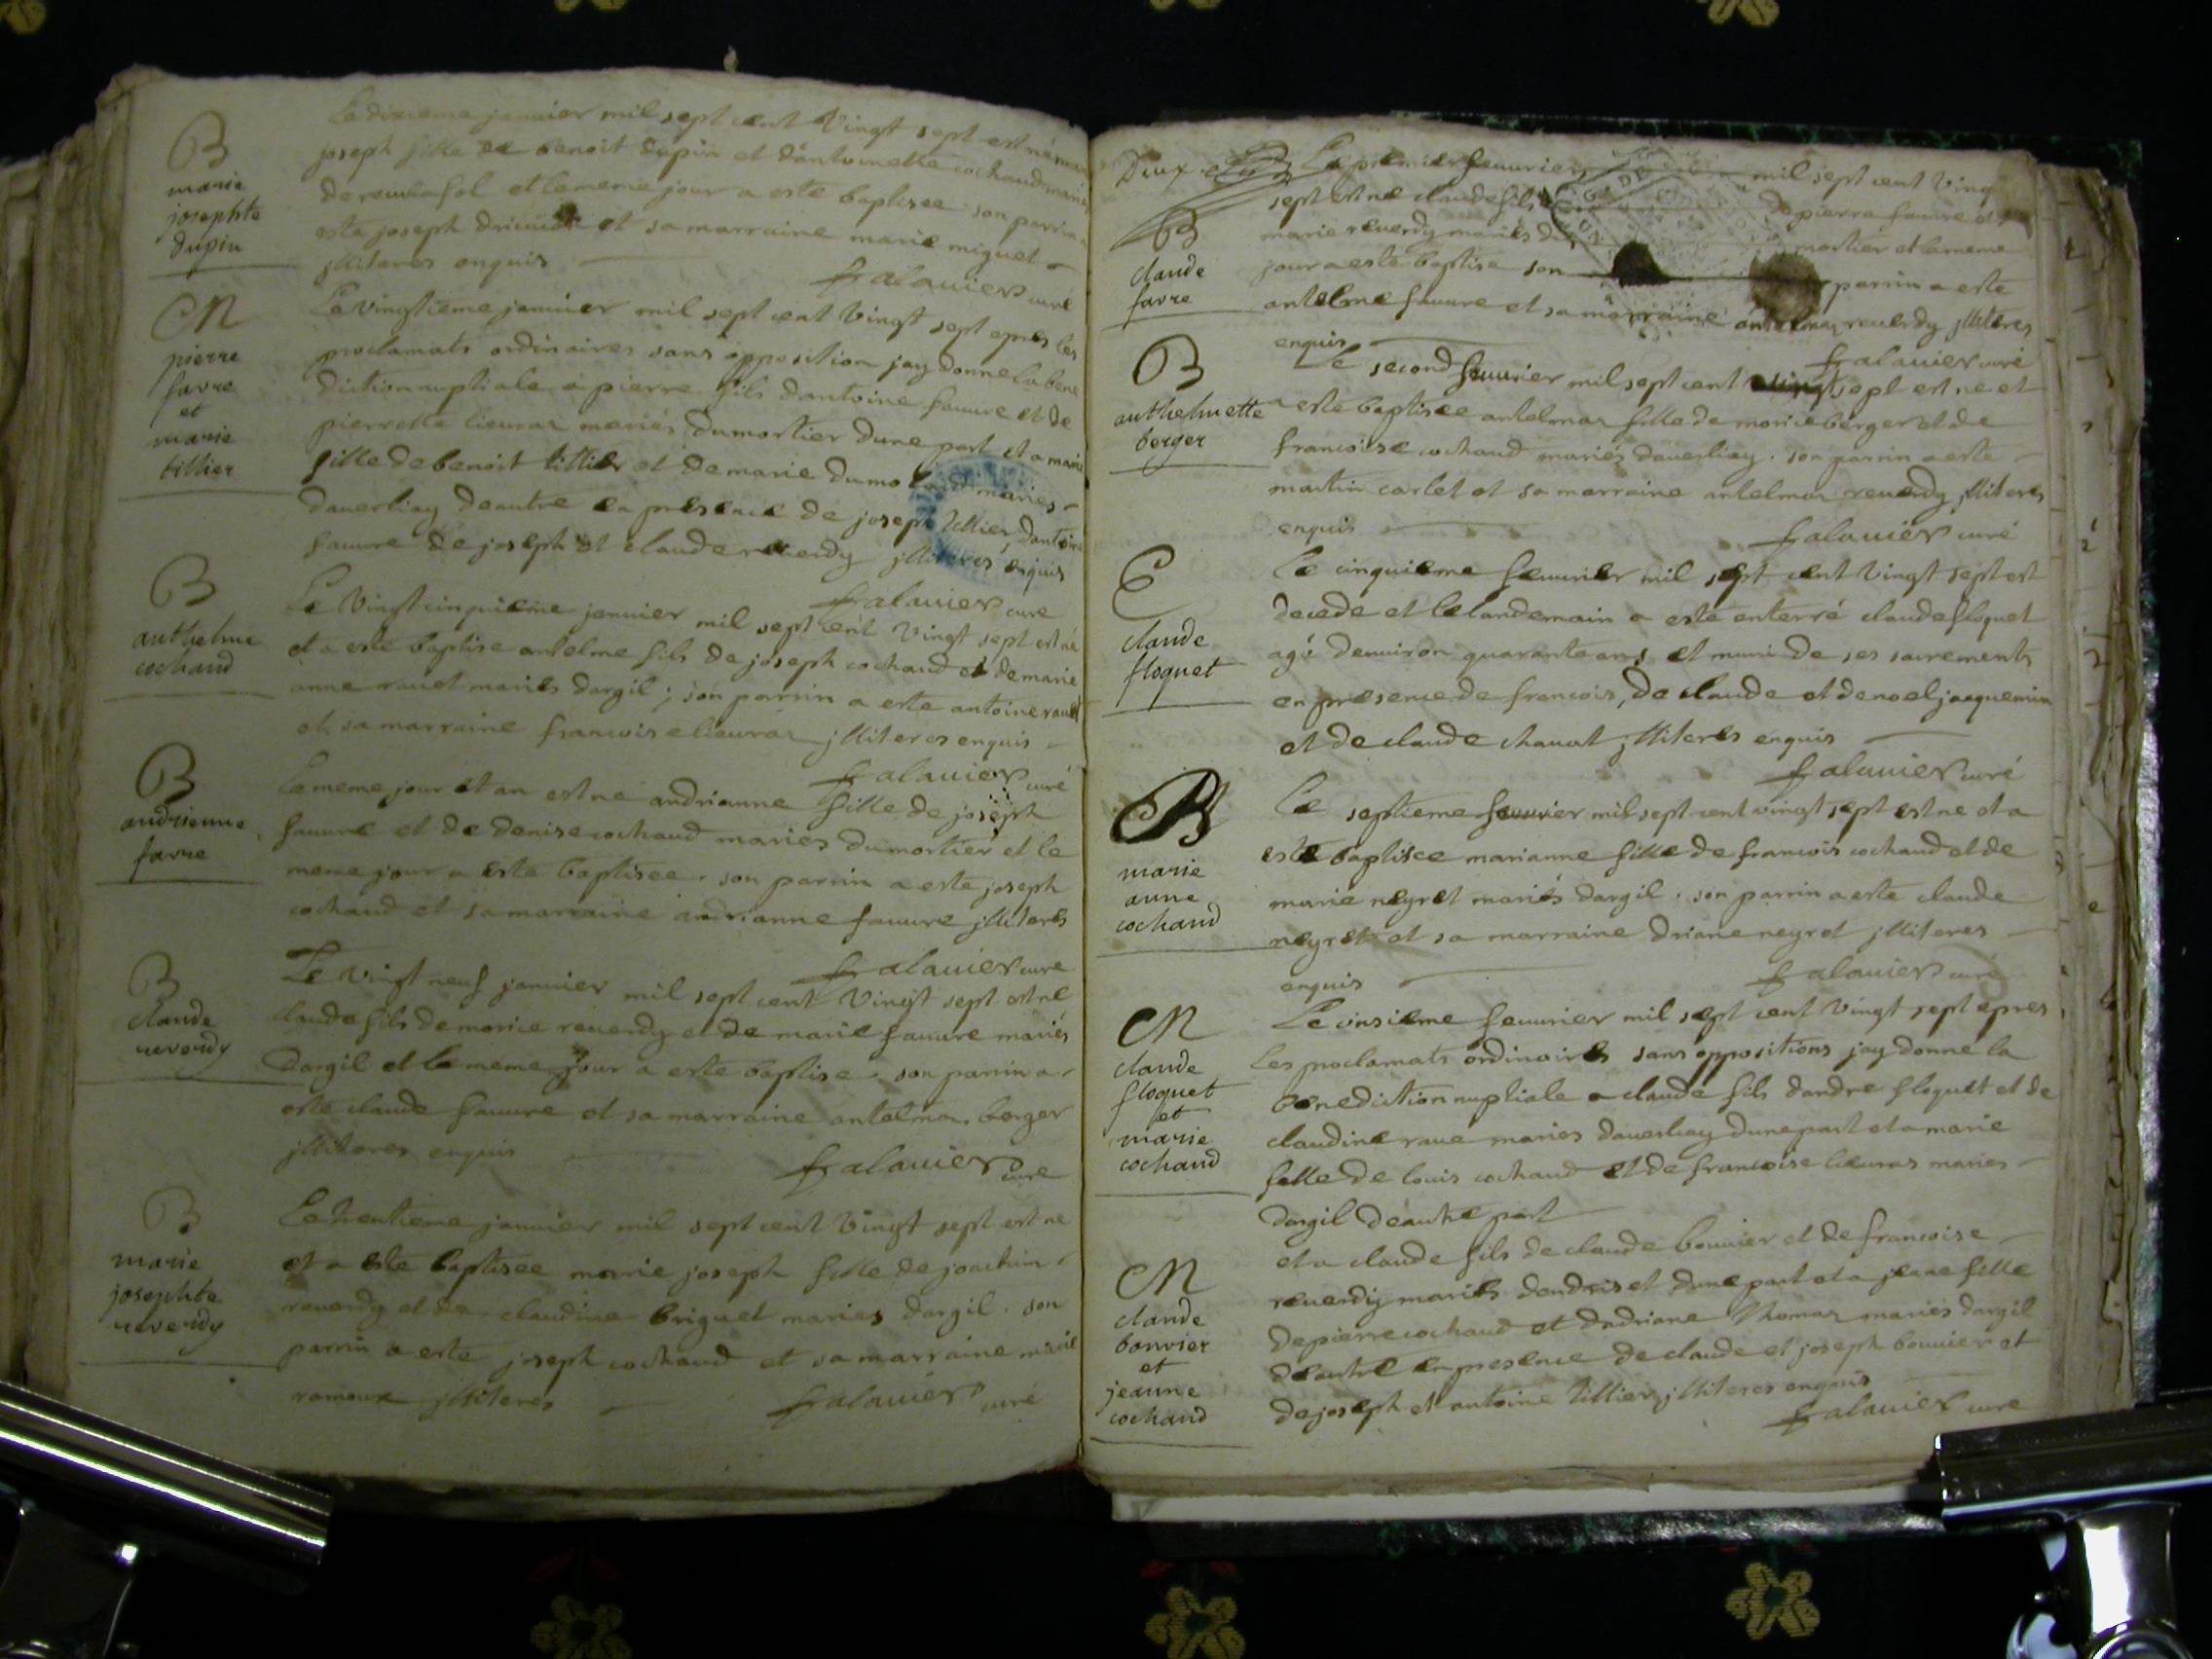 B
marie
josephte
dupin
Le dixieme janvier mil sept cent Vingt sept est né marie
joseph fille de benoit dupin et dantoinette cochaud mariés
et le meme jour a este baptisee son parrin a
este joseph et sa marraine marie miguet
jlliteres enquis
falavier curé
M
pierre
favre
et
marie
tillier
Le vingtieme janvier mil sept cent Vingt sept epres les
proclamats ordinaires sans opposition jay donne la bene
diction nuptiale a pierre fils dantoine fauure et de
pierrette lieuraz mariés dumortier dune part et a marie
fille de benoit tillier et de marie dumoland mariés
daverliay deautre en presence de joseph tillier dantoine
fauure de joseph et claude reuerdy jlliteres enquis
falavier curé
B
anthelme
cochaud
Le Vingt cinquieme janvier mil sept cent Vingt sept est né
et a esté baptise antelme fils de joseph cochaud et de marie
anne rauet mariés dargil ; son parrin a este antoine rauet
et sa marraine francoise lieuraz jlliteres enquis
falavier curé
B
andrienne
favre
Le meme jour et an est né andrianne fille de joseph
fauure et de denise cochaud mariés dumortier et le
meme jour a este baptisee . son parrin a este joseph
cochaud et sa marraine andrianne fauure jlliteres
falavier curé
B
claude
reverdy
Le Vingt neuf janvier mil sept cent Vingt sept est né
claude fils de morice reuerdy et de marie fauure mariés
dargil et le meme jour a este baptise . son parrin a
este claude fauure et sa marraine antelmaz berger
jlliteres enquis
falavier curé
B
marie
josephte
reverdy
Le trentieme janvier mil sept cent Vingt sept est né
et a este baptisee marie joseph fille de joachim
reuerdy et de claudine briguet mariés dargil . son
parrin a este joseph cochaud et sa marraine marie
ramoux jlliteres
falavier curé
Deux
Le premier feuurier mil sept cent Vingt
sept est né claude fils de pierre fauure et de
marie reuerdy mariés du mortier et le meme
jour a este baptise son parrin a este
antelme fauure et sa marraine antelmaz reuerdy jlliteres
enquis
falavier curé
B
claude
favre
B
anthelmette
berger
Le second feuurier mil sept cent vingt sept est né et
a este baptisee antelmaz fille de morice berger et de
francoise cochaud mariés dauerliay . son parrin a este
martin carlet et sa marraine antelmaz reuerdy jlliteres
enquis
falavier curé
E
claude
floquet
Le cinquieme feuurier mil sept cent Vingt sept est
decede et le landemain a esté enterré claude floquet
agé denuiron quarante ans et muni de ses sacrements
en presence de francois, de claude et de noel jacquemin
et de claude chauat jlliteres enquis
falavier curé
B
marie
anne
cochaud
Le septieme feuurier mil sept cent vingt sept est né et a
este baptisee marianne fille de francois cochaud et de
marie neyret mariés dargil . son parrin a este claude
neyret et sa marraine driane neyret jlliteres
enquis
falavier curé
M
claude
floquet
et
marie
cochaud
Le onsieme feuurier mil sept cent Vingt sept epres
les proclamats ordinaires sans oppositions jay donné la
benediction nuptiale a claude fils dandre floquet et de
claudine raue mariés dauerliay dune part et a marie
fille de louis cochaud et de francoise lieuras mariés
dargil deautre part
M
claude
bonvier
et
jeanne
cochaud
et a claude fils de claude bonuier et de francoise
reuerdy mariés dandris et dune part et a jeane fille
de pierre cochaud et dadriane thomaz mariés dargil
deautre en presence de claude et joseph bonuier et
de joseph et antoine tillier jlliteres enquis
falavier curé